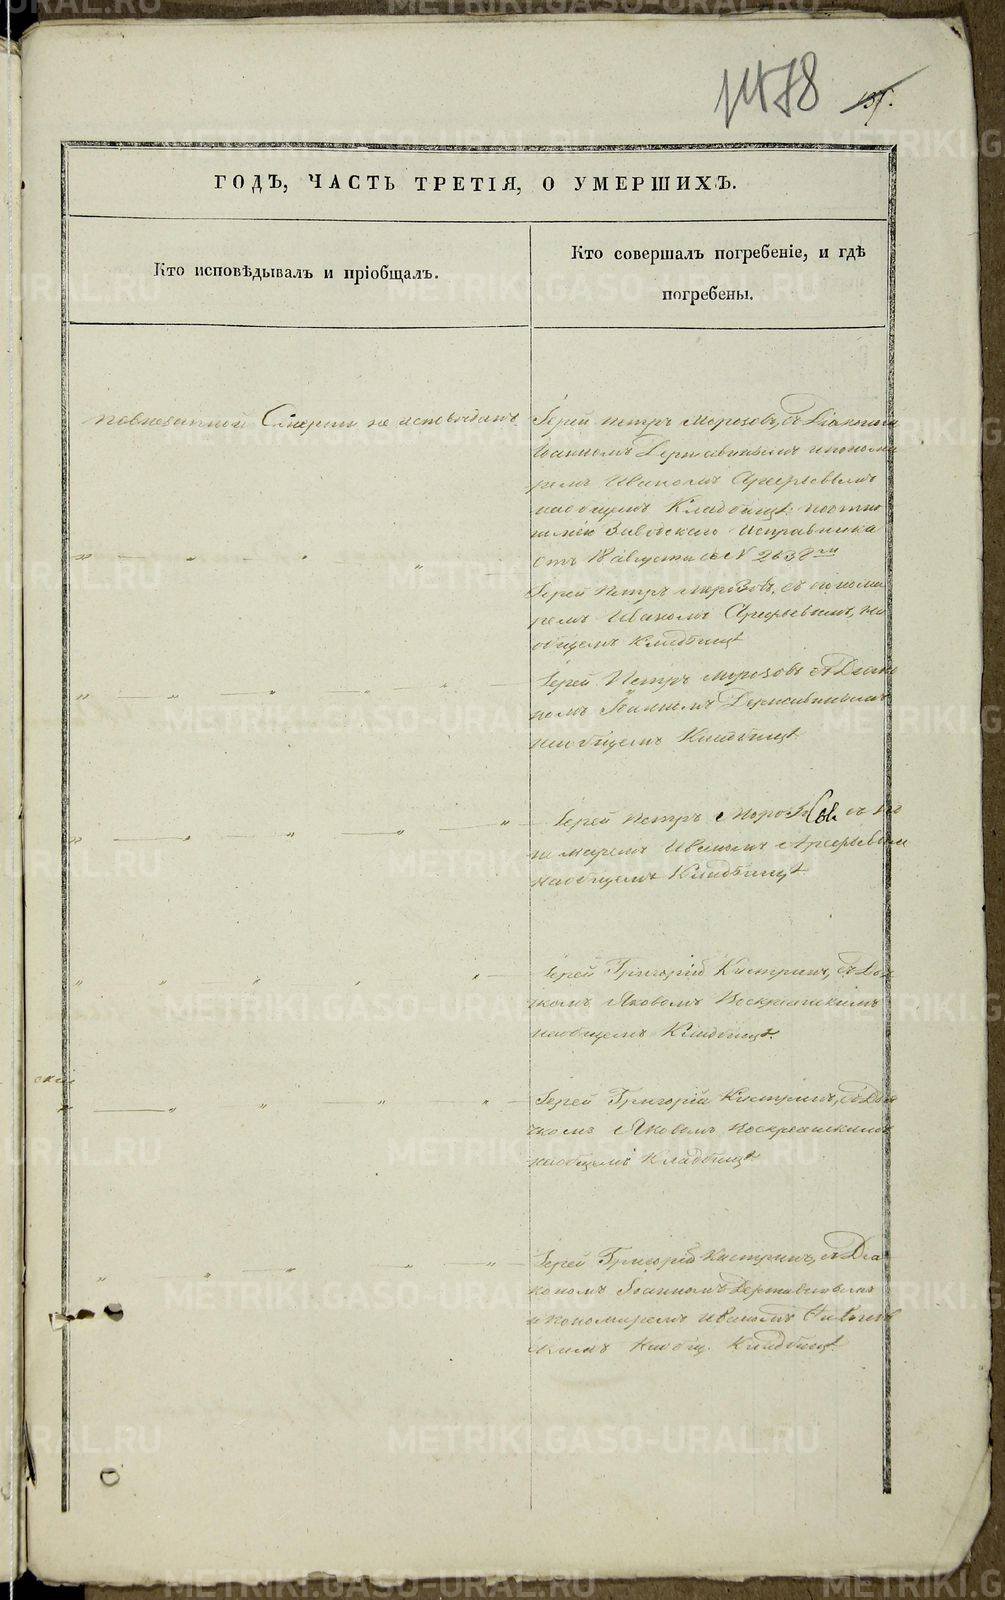 1478
137.
ГОДЪ, ЧАСТЬ ТРЕТІЯ, О УМЕРШИХЪ.
Кто исповѣдывалъ и пріобщалъ.
Кто совершалъ погребеніе, и гдѣ
погребены.
Смерти не исповѣданъ
Іерей Петръ Морозовъ, съ Діакономъ
Іоанномъ Державинымъ и понома
ремъ Иваномъ Арефьевымъ
на общемъ Кладбищѣ по отно
шенію Заводскаго Исправника
отъ 18 августа за N 2638
Іерей Петръ Морозовъ, съ понома
ремъ Иваномъ Арефьевымъ, на
общемъ Кладбищѣ
Іерей Петръ Морозовъ съ Діако
номъ Іоанномъ Державинымъ
на общемъ Кладбищѣ
Іерей Петръ Морозовъ съ по
номаремъ Иваномъ Арефьевым
на общемъ Кладбищѣ
Іерей Григорій Кастринъ, съ Дья
комъ Яковомъ Воскресенскимъ
на общемъ Кладбищѣ
скій
Іерей Григорій Кастринъ, съ Дья
комъ Яковомъ Воскресенскимъ
на общемъ Кладбищѣ
Іерей Григорій Кастринъ, съ Діа
кономъ Іоанномъ Державинымъ
и Пономаремъ Иваномъ
на общ. Кладбищѣ
METRIKI.GASO-URAL.RU